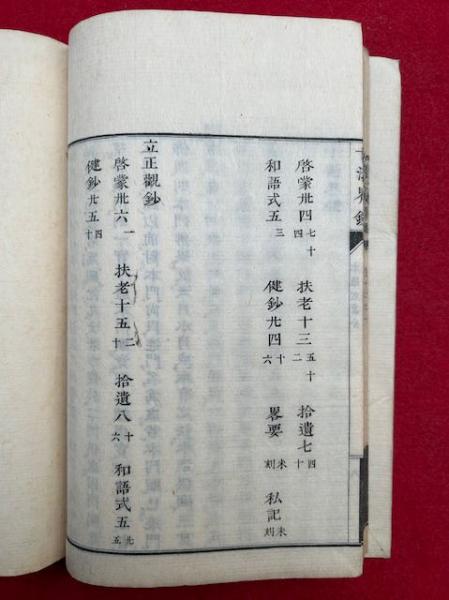 啓蒙卅四 四 七十 扶老十三 二 五十 拾遺七 十 四
和語式五 三 健鈔廾四 六 十 畧要 未刻 私記 未刻
立正觀鈔
啓蒙卅六 一 扶老十五 十 二 拾遺八 六 十 和語式五 五 先
健鈔廾五 十 四